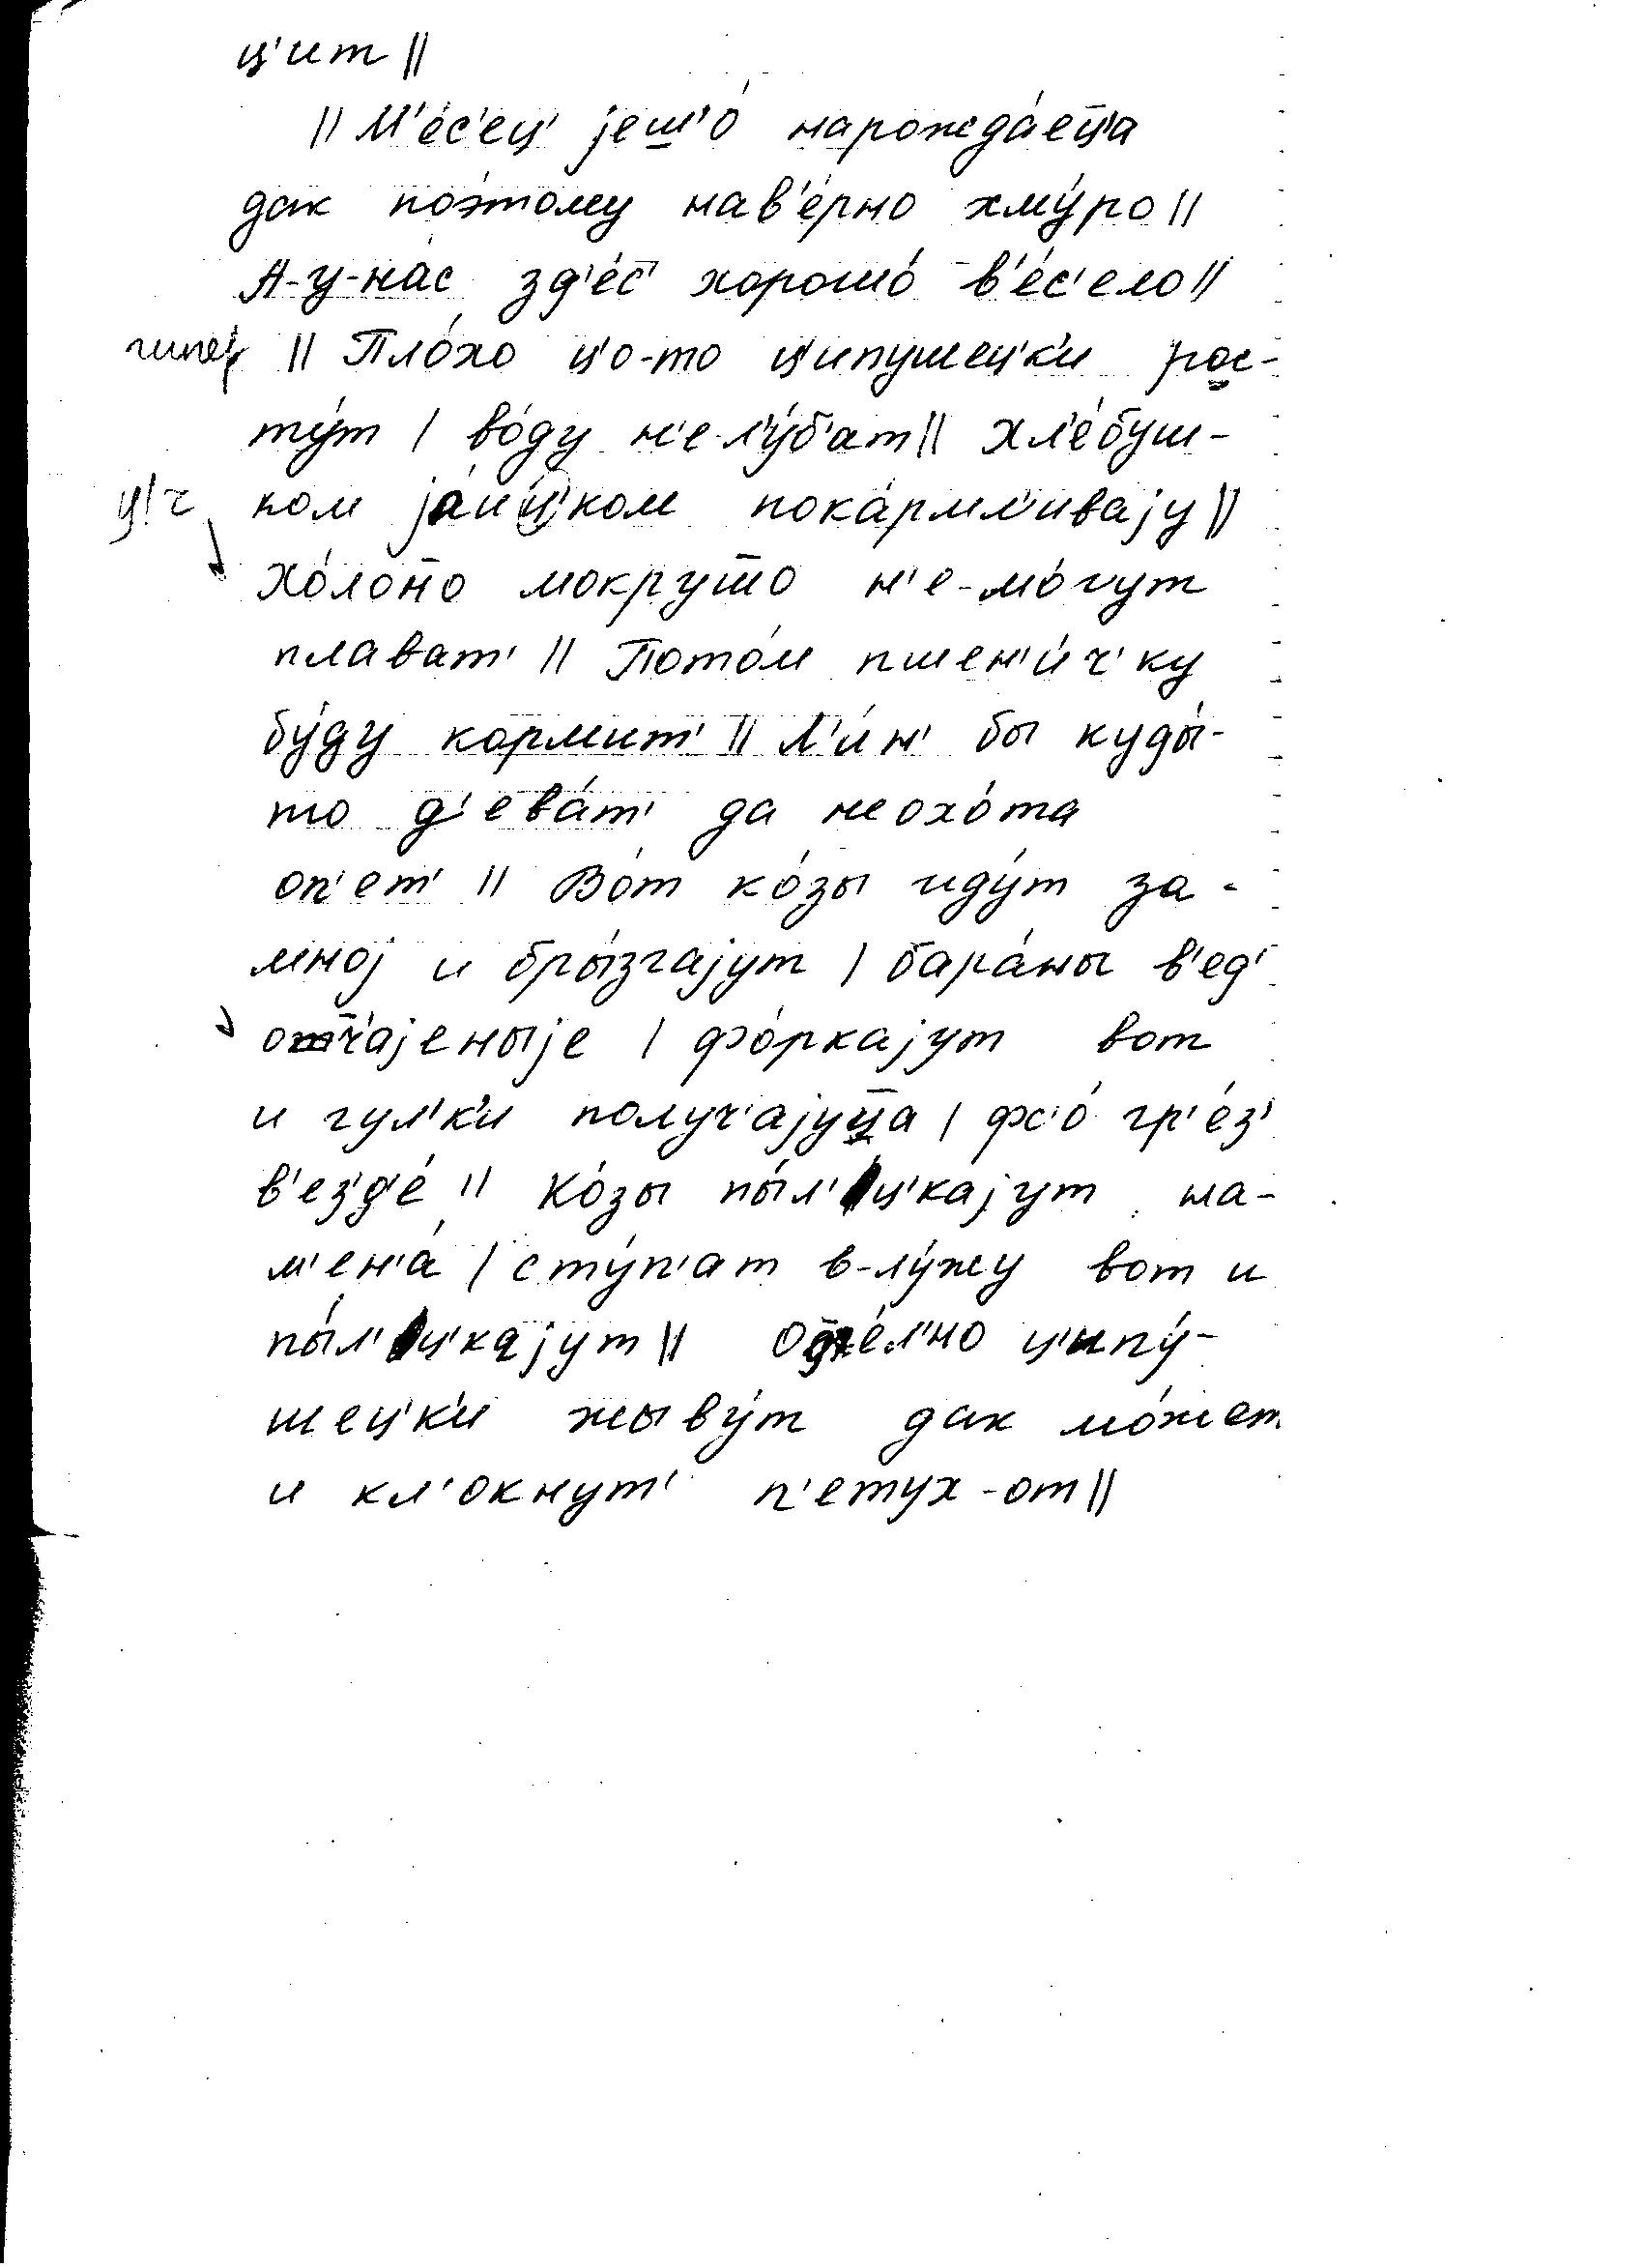 ц'ит ||
|| М'е́с'ец' jеш̲'о́ нарожда́ец̄'а
дак поэ́тому нав'е́рно хму́ро ||
А-у-на́с зд'е́с' хорошо́ в'е́с'ело ||
|| Пло́хо ц'о-то ц'ипушец'к'и рос-
ту́т | во́ду н'е л'у́б'ат || хл'е́буш-
ком jа́иц'ком пока́рмл'иваjу ||
ц'/ч
Хо́лон̄о мокрут̄о н'е-мо́гут
плават' || Пото́м пшен'и́ч'ку
бу́ду кормит' || Л'и́н' бы куды́-
то д'ева́т' да неохо́та
оп'ет' || Во́т ко́зы иду́т за-
мноj и бры́згаjут | бара́ны в'ед'
отч̄'аjеныjе | фо́ркаjут вот
и гул'к'и получ'аjуц̄а | фс'о́ гр'е́з'
в'ез'д'е́ || Ко́зы пы́л'ц'каjут на-
м'ен'а́ | сту́п'ат в-лу́жу вот и
пы́л'ц'каjут || Од̄'е́л'но ц'ипу́-
шец'к'и жыву́т дак мо́жет
и кл'окнут' п'етух-от ||